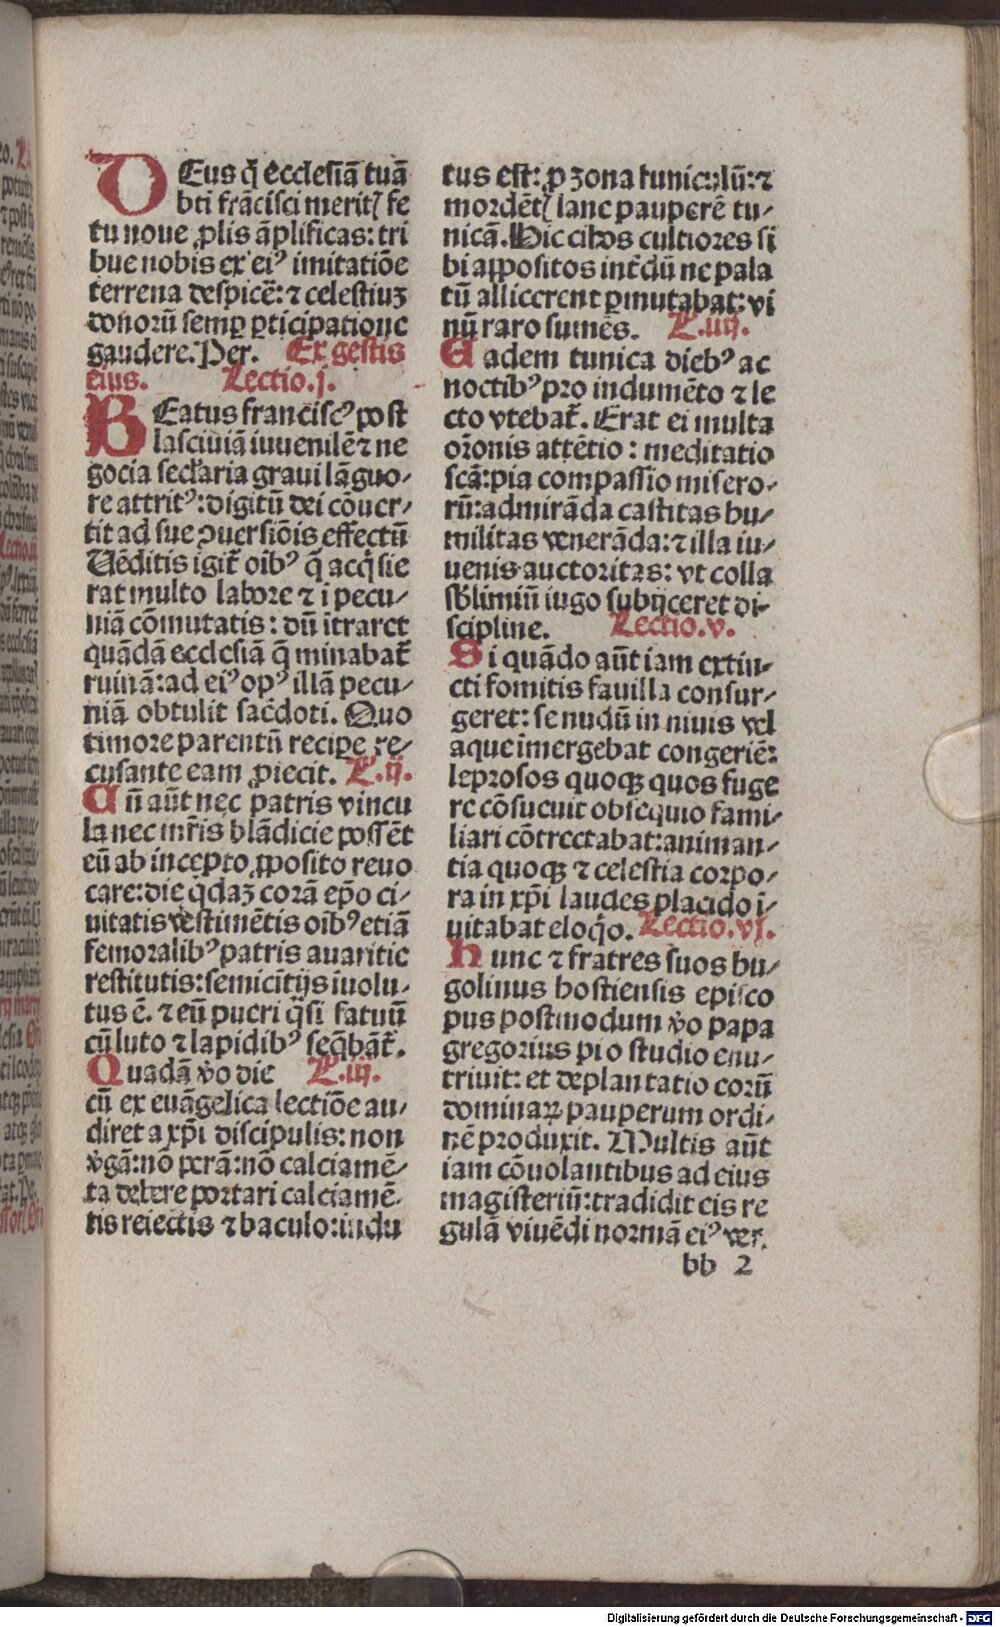 DEus q̃ ecclesiã tuã
bti frãcisci meritʒ fe
tu noue ꝓlis ãplificas: tri
bue nobis ex eiꝰ imitatiõe
terrena despicẽ: ⁊ celestiuʒ
donorũ semꝑ ꝑticipatione
gaudere. Per. Ex gestis
eius. Lectio.j.
BEatus franciscꝰ post
lasciuiã iuuenilẽ ⁊ ne
gocia seclaria graui lãguo⸗
re attritꝰ: digitũ dei cõuer⸗
tit ad sue ꝯuersiõis effectũ
Uẽditis igit̃ oĩbꝰ q̃ acq̃sie
rat multo labore ⁊ i pecu⸗
niã cõmutatis: dũ ĩtraret
quãdã ecclesiã q̃ minabat̃
ruinã: ad eiꝰ opꝰ illã pecu⸗
niã obtulit sac̃doti. Quo
timore parentũ recipe re⸗
cusante eam ꝓiecit. L.ij.
Cũ aũt nec patris vincu
la nec mr̃is blãdicie possẽt
eũ ab incepto ꝓposito reuo
care: die qdaʒ corã epõ ci⸗
uitatis vestimẽtis oĩbꝰ etiã
femoralibꝰ patris auaritie
restitutis: semicĩtijs inuolu⸗
tus ẽ. ⁊ eũ pueri q̃si fatuũ
cũ luto ⁊ lapidibꝰ seq̃bãt̃.
Quadã ṽo die L.iij.
cũ ex euãgelica lectiõe au⸗
diret a xp̃i discipulis: non
ṽgã: nõ perã: nõ calciamẽ⸗
ta debere portari calciamẽ⸗
tis reiectis ⁊ baculo: indu
tus est: ꝓ zona funiculũ: ⁊
mordẽtʒ lane pauperẽ tu⸗
nicã. Hic cibos cultiores si
bi appositos int̃dũ ne pala
tũ allicerent ꝑmutabat: vi
nũ raro sumẽs. L.iiij.
Eadem tunica diebꝰ ac
noctibꝰ pro indumẽto ⁊ le
cto vtebat̃. Erat ei multa
or̃onis attẽtio: meditatio
scã: pia compassio misero⸗
rũ: admirãda castitas hu⸗
militas venerãda: ⁊ illa iu⸗
uenis auctoritas: vt colla
sb̃limiũ iugo subijceret di⸗
scipline. Lectio.v.
Si quãdo aũt iam extin⸗
cti fomitis fauilla consur⸗
geret: se nudũ in niuis vel
aque ĩmergebat congeriẽ:
leprosos quoqʒ quos fuge
re cõsueuit obsequio fami⸗
liari cõtrectabat: animan⸗
tia quoqʒ ⁊ celestia corpo⸗
ra in xp̃i laudes placido ĩ⸗
uitabat eloq̃o. Lectio.vj.
Hunc ⁊ fratres suos hu⸗
golinus hostiensis episco
pus postmodum ṽo papa
gregorius pio studio enu⸗
triuit: et deplantatio eorũ
dominaꝝ pauperum ordi⸗
nẽ produxit. Multis aũt
iam cõuolantibus ad eius
magisteriũ: tradidit eis re
gulã viuẽdi normã eiꝰ ver.
bb 2
Digitalisierung gefördert durch die Deutsche Forschungsgemeinschaft - DFG